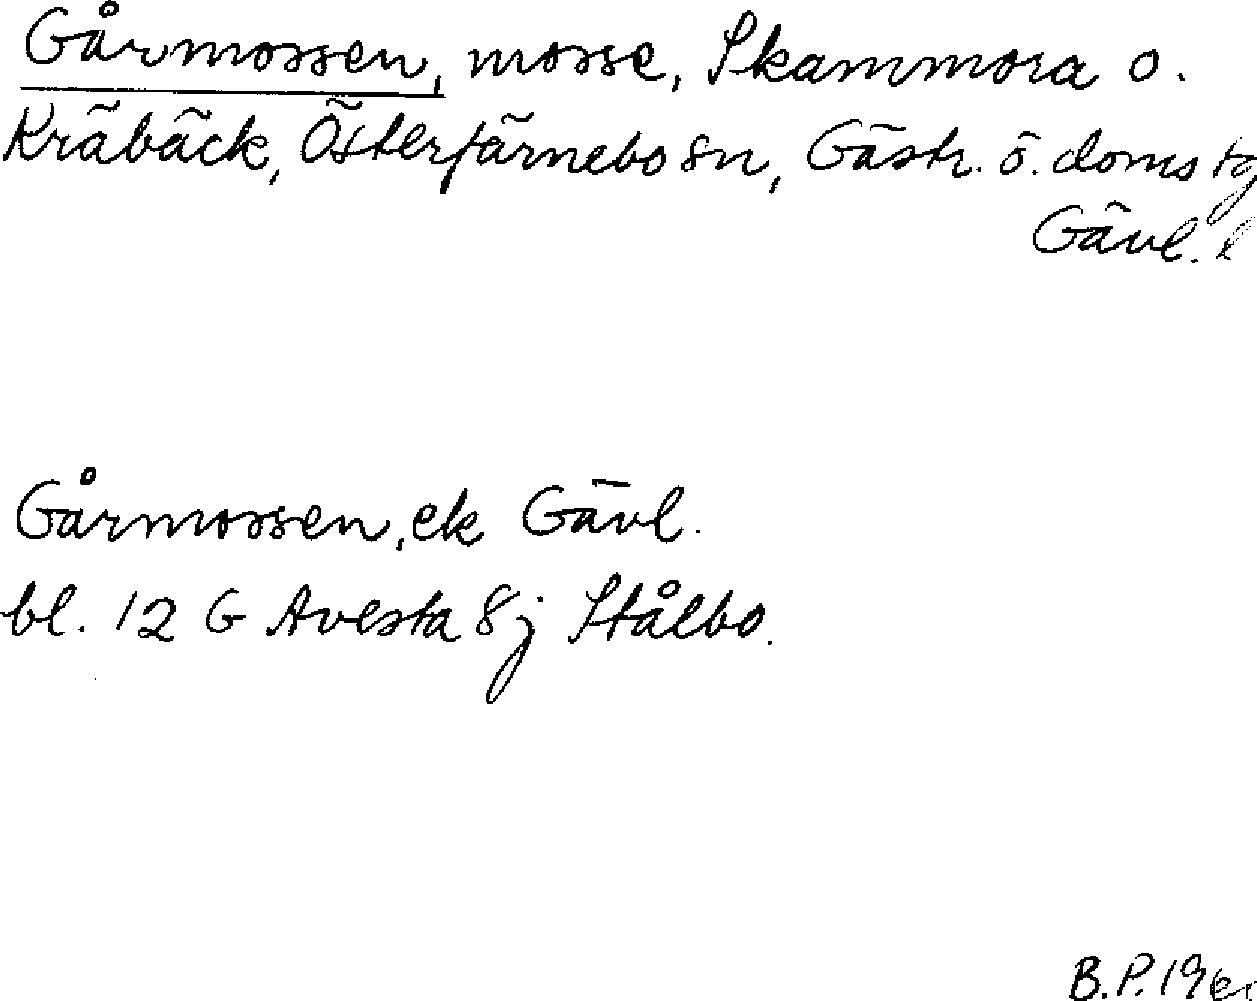 Gårmossen, mosse, Skammora o.
Kräbäck, Österfärnebo sn, Gästr. ö. doms tg
Gävl. l
Gårmossen, ek Gävl.
bl. 12 G Avesta 8j Stålbo.
B.P.